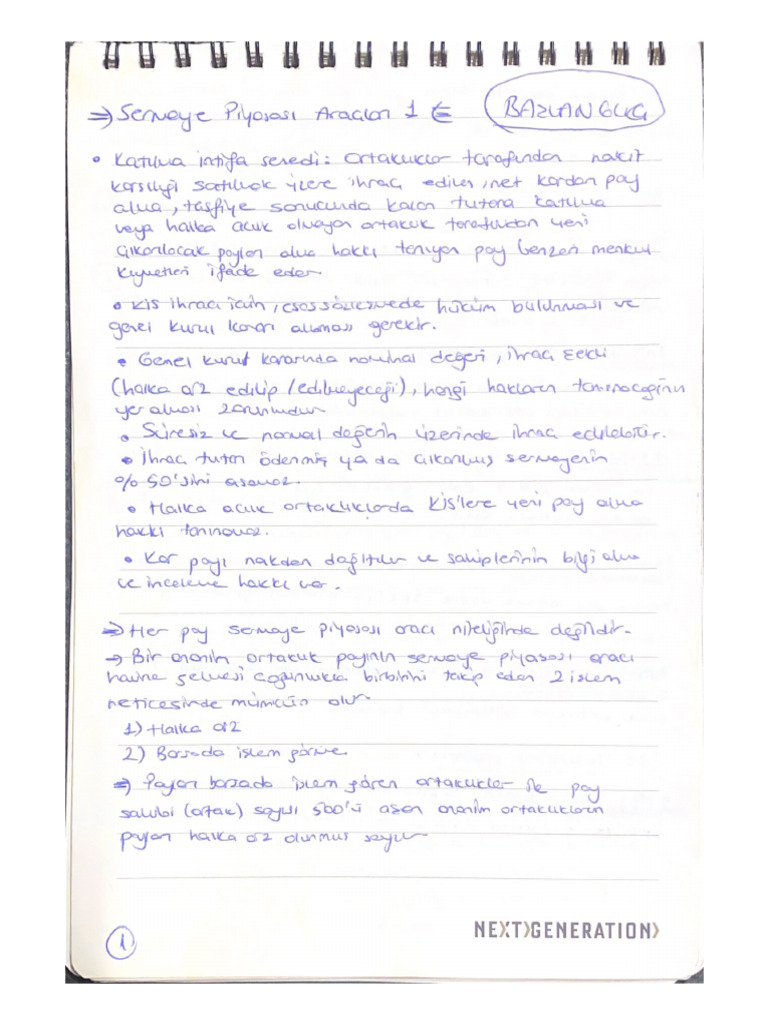 ⇒ Sermaye Piyasası Araçları 1 ⇐
BAŞLANGIÇ
• Katılma intifa senedi: Ortaklıklar tarafından nakit
karşılığı satılmak üzere ihraç edilen, net kardan pay
alma, tasfiye sonucunda kalan tutara katılma
veya halka açık olmayan ortaklık tarafından yeni
çıkarılacak payları alma hakkı tanıyan pay benzeri menkul
kıymetleri ifade eder.
• KİS ihracı için, esas sözleşmede hüküm bulunması ve
genel kurul kararı alınması gerekir.
• Genel kurul kararında nominal değeri, ihraç şekli
(halka arz edilip/edilmeyeceği), hangi hakların tanınacağının
yer alması zorunludur
• Süresiz ve normal değerin üzerinde ihraç edilebilir.
• İhraç tutarı ödenmiş ya da çıkarılmış sermayenin
%50'sini aşamaz.
• Halka açık ortaklıklarda KİS'lere yeni pay alma
hakkı tanınamaz.
• Kar payı nakden dağıtılır ve sahiplerinin bilgi alma
ve inceleme hakkı var.
⇒ Her pay sermaye piyasası aracı niteliğinde değildir.
→ Bir anonim ortaklık payının sermaye piyasası aracı
haline gelmesi çoğunlukla birbirini takip eden 2 işlem
neticesinde mümkün olur
1) Halka arz
2) Borsada işlem görme
⇒ Payları borsada işlem gören ortaklıklar ile pay
sahibi (ortak) sayısı 500'ü aşan anonim ortaklıkların
payları halka arz olunmuş sayılır
1
NEXT>GENERATION>